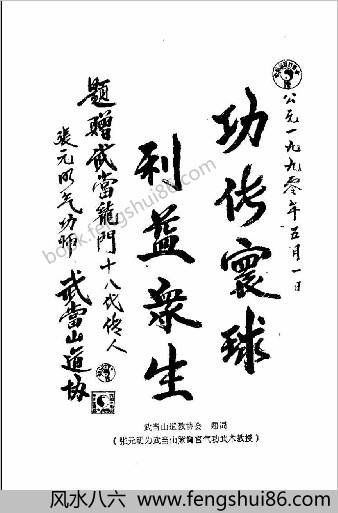 公元一九九零年五月一日
功传寰球
利益衆生
题赠武當龍門十八代传人
张元明气功师 武當山道协
武当山道教协会 题词
(张元明为武当山紫霄宫气功武术教授)
book.fengshui86.com
风水八六 - www.fengshui86.com